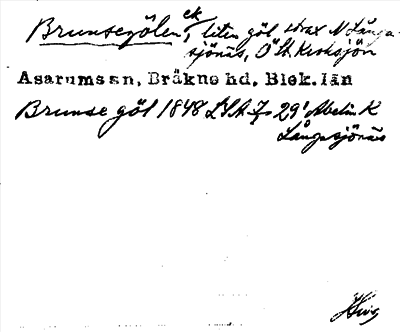 Brunsegölen ek, liten göl strax N Långa-
sjönäs, Ö
Asarums sn, Bräkne hd, Blek. län
Brunse göl 1848 LSA 7 29¹ Abelin K
Långasjönäs